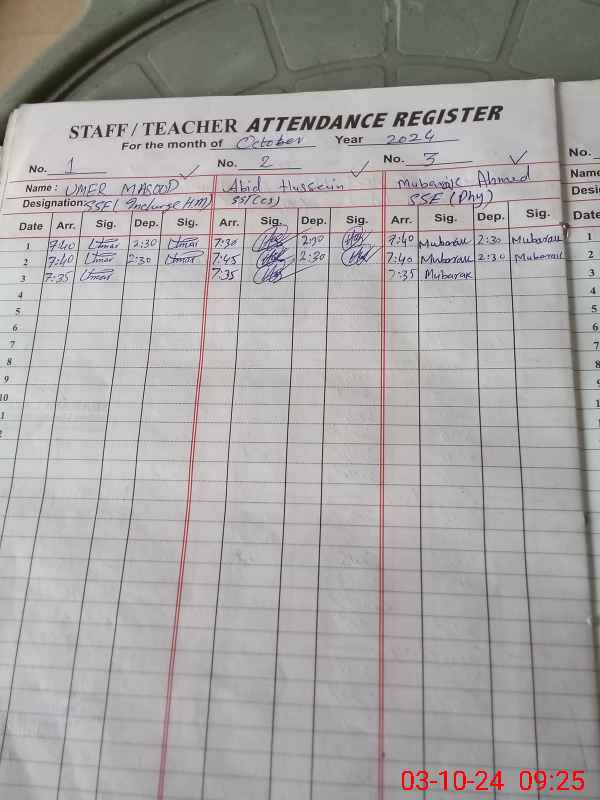 STAFF / TEACHER ATTENDANCE REGISTER
For the month of October Year 2024
No. 1 No. 2 No. 3 No.
Name: UMER MASOOD Abid Hussain Mubarak Ahmed Name
Designation: SSE( Incharge HM) SST(CS) SSE (Phy) Desi
Date Arr. Sig. Dep. Sig. Arr. Sig. Dep. Sig. Arr. Sig. Dep. Sig. Date
1 7:40 Umar 2:30 Umar 7:30 2:30 7:40 Mubarak 2:30 Mubarak 1
2 7:40 Umar 2:30 Umar 7:45 2:30 7:40 Mubarak 2:30 Mubarak 2
3 7:35 Umar 7:35 7:35 Mubarak 3
4 4
5 5
6 6
7 7
8 8
9 9
10 1
1 1
2
03-10-24 09:25